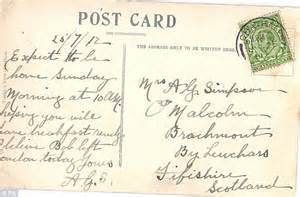 POST CARD
THE ADDRESS ONLY TO BE WRITTEN HERE
25/7/12
Expect to be
home Sunday
Morning at 10 AM
hoping you will
have breakfast ready
Believe Bob left
London today Yours
A.G.S.
Mrs A.G. Simpson
Malcolm
Brachmont
By Leuchars
Fifishire
Scotland